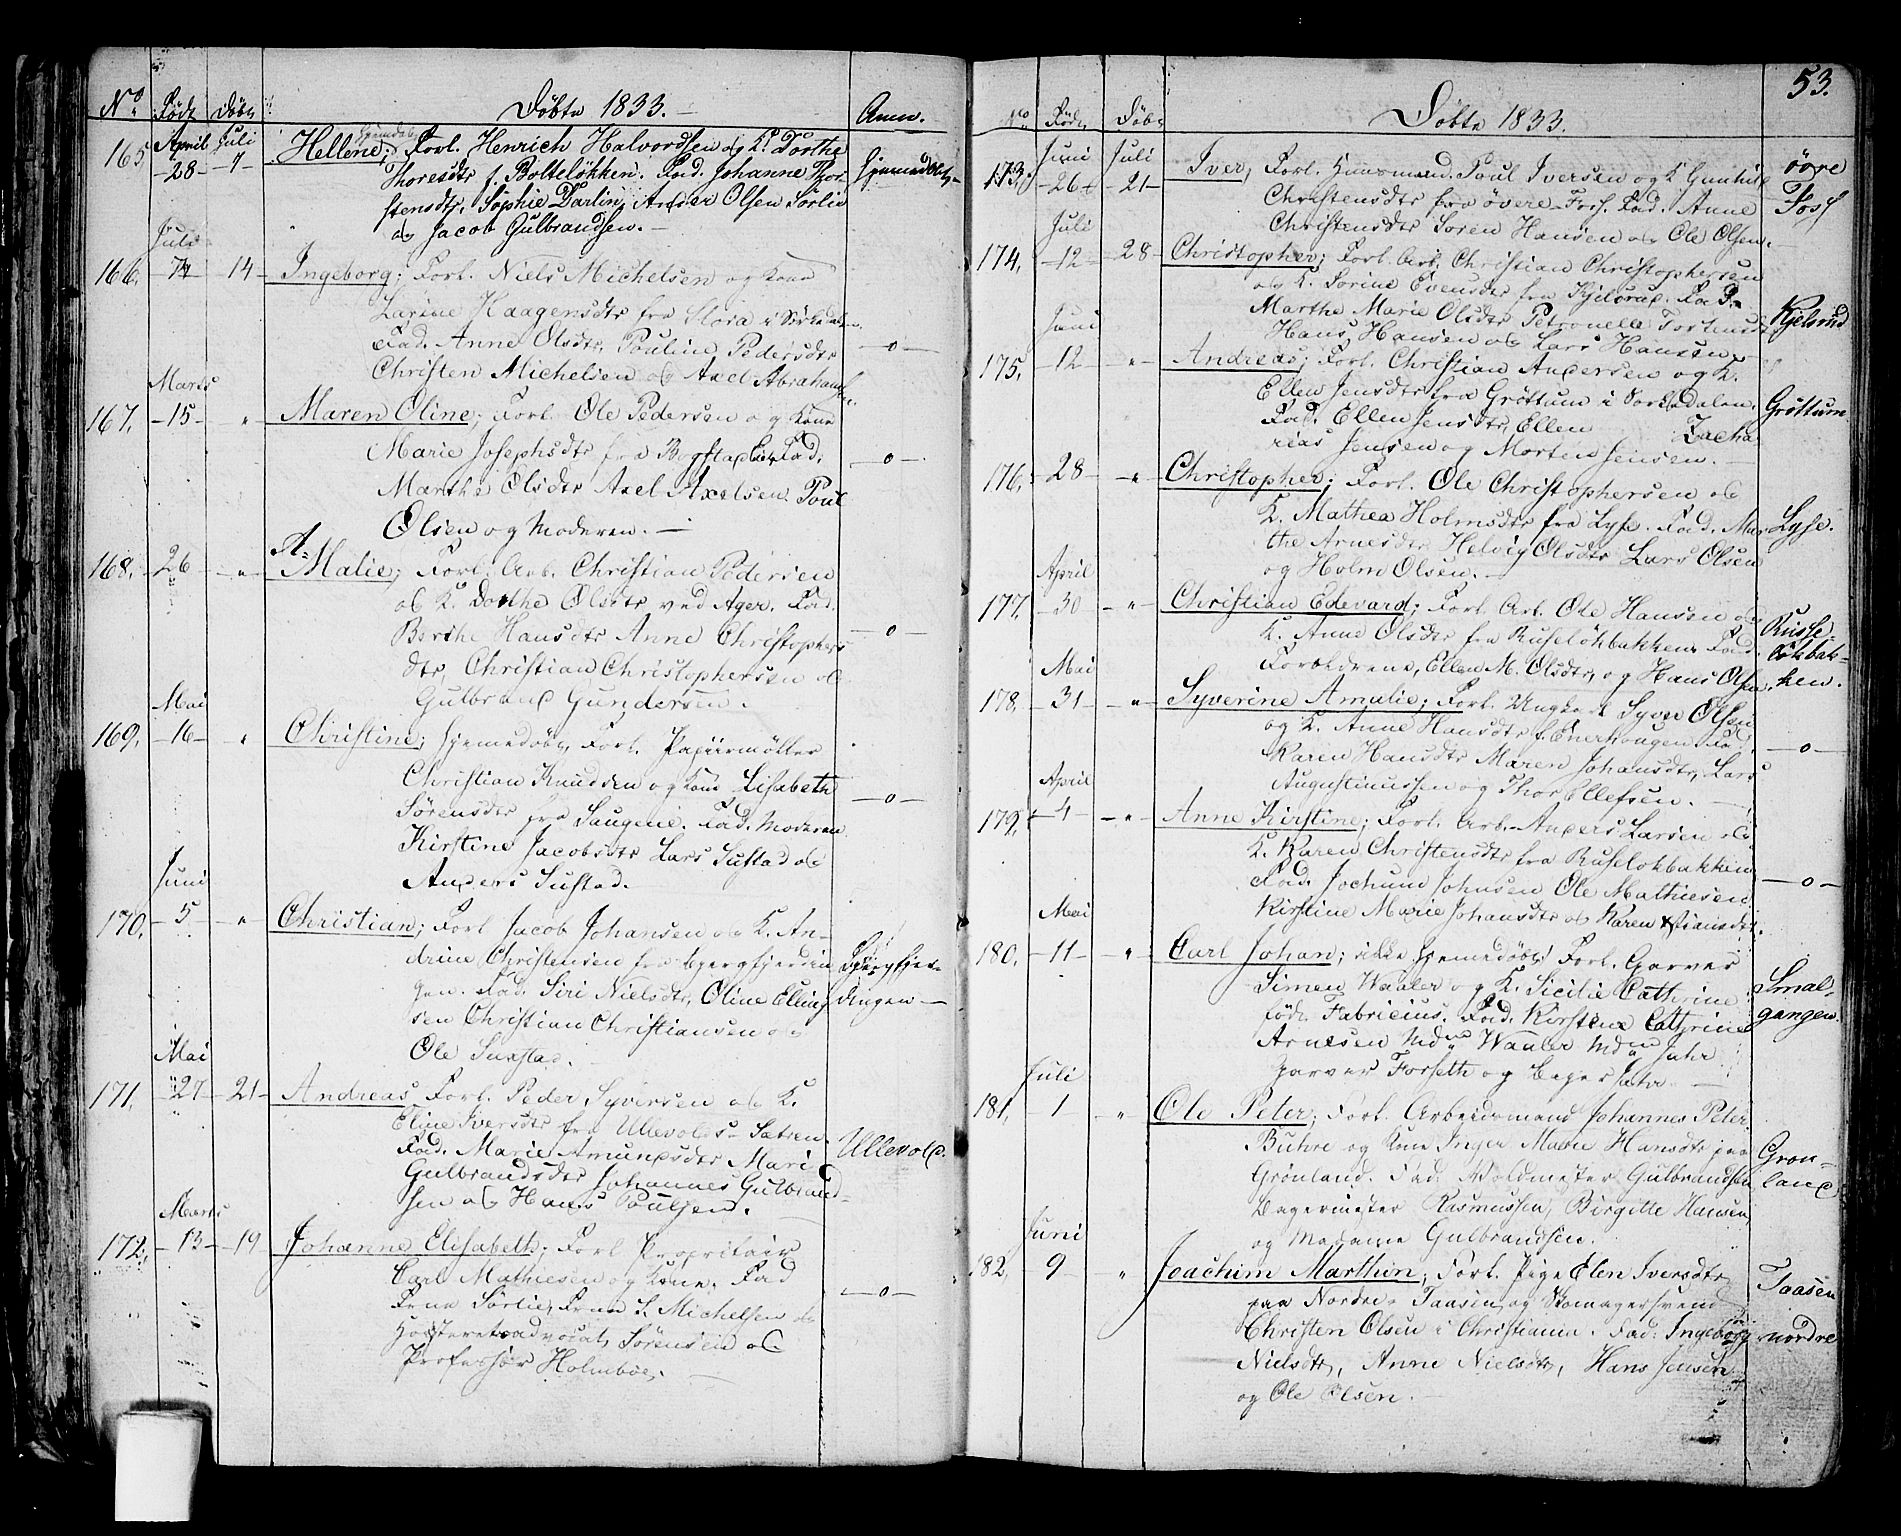 No. Födt Döbt Döbte 1833. Anm.
165 April 28 Juli 7 Hellene; hjemdöbt, Forl. Henrich Halvordsen og K. Dorthe
Thoresdtr f. Bolteløkken. Fad. Johanne Thor-
stensdtr, Sophie Darlin, Anders Olsen Sörlie
og Jacob Gulbrandsen. Hjemmedöbt
Juli
166. 7 14 Ingeborg; Forl. Niels Michelsen og Kone
Larine Haagensdtr fra Slora i Sörkedalen.
Fad. Anne Olsdtr, Pauline Pedersdtr
Christen Michelsen og Axel Abrahamsen. —o—
Marts
167. 15 " Maren Oline; Forl. Ole Pedersen og Kone
Marie Josephsdtr fra Bogstad Fad. —o—
Marthe Olsdtr Axel Axelsen Poul
Olsen og Moderen.
168. 26 " A-Malie; Forl. Arb. Christian Pedersen
og K. Dorthe Olsdtr ved Ager. Fad.
Berthe Hansdtr Anne Christophers- —o—
dtr, Christian Christophersen og
Gulbrand Gundersen.
Mai
169. 16 " Christine; hjemmedöbt, Forl. Papiirmøller
Christian Knudsen og Kone Lisabeth —o—
Sörensdtr fra Saugene. Fad. Moderen
Kirstine Jacobsdtr Lars Sustad og
Anders Sustad.
Juni
170. 5 " Christian; Forl Jacob Johansen og K. An-
drine Christensen fra Bjergfjerdin Bjergfjer-
gen. Fad. Siri Nielsdtr, Oline Elling dingen
sen Christian Christiansen og
Ole
Mai
171. 27 21 Andreas, Forl. Peder Syversen og K.
Eline Iversdtr fra Ullevolds-Satren.
Fad. Marie Amundsdtr Mari Ullevold.
Gulbrandsdtr Johannes Gulbrand-
sen og Hans Poulsen.
Marts
172. 13 19 Johanne Elisabeth; Forl Propritair
Carl Mathiesen og Kone. Fad
Frue Sörlie, Frue S. Michelsen og —o—
Hoisteretsadvocat Sörensen og
Professor Holmboe.
53.
No. Födt Döbt Döbte 1833.
173. Juni 26 Juli 21 Iver, Forl. Huusmand. Poul Iversen og K Gunhild övre
Christensdtr fra övere-Foss. Fad. Anne Foss
Christensdtr Soren Hansen og Ole Olsen.
Juli
174. 12 28 Christopher; Forl. Arb. Christian Christophersen
og K. Sorine Evensdtr fra Kjelsrud. Fad.
Marthe Marie Olsdtr Petronelle Kjelsrud
Hans Hansen og Lars Hansen.
Juni
175. 12 " Andreas; Forl. Christian Andersen og K.
Ellen Jensdtr fra Gröttum i Sorkedalen. Gröttum
Fad. Ellen Jensdtr, Ellen Zacha
rias Jensen og Morten Jensen.
176. 28 " Christopher; Forl. Ole Christophersen og
K. Mathea Holmsdtr fra Lyse. Fad. Mar Lyse.
the Arnesdtr Helvig Olsdtr Lars Olsen
og Holm Olsen.
April
177. 30 " Christian Edevard; Forl. Arb. Ole Hansen og
K. Anne Olsdtr fra Ruselökbakken Fad. Russe-
Forældrene, Ellen M. Olsdtr, og Hans Olsen. lökbak-
ken.
Mai
178. 31 " Syverine Amalie; Forl. Ungkarl Syver Olsen
og K. Anne Hansdtr f. Enerhougen Fad. —o—
Karen Hansdtr Maren Johansdtr, Lars
Augustinussen og Thor Ellefsen.
April
179. 4 " Anne Kirstine; Forl. Arb. Anders Larsen og
K. Karen Christensdtr fra Ruselokbakken
Fad. Jochum Johnsen Ole Mathiesen —o—
Kirstine Marie Johansdtr og Karen
Mai
180. 11 " Carl Johan; ikke hjemmedöbt; Forl. Garver
Simen Waaler og K. Sicilie Cathrine Smal-
födt Fabricius. Fad. Kirstine Cathrine gangen.
Arnesen Mdme Waaler Mdme Jahr
Garver Forseth og Bager Jahr
Juli
181. 1 " Ole Peter; Forl. Arbeidsmand Johannes Peter
Buhre og Kone Inger Marie Hansdtr paa Gron-
Grönland. Fad. Woldmester Gulbrandsen land
Bagermester Rasmussen, Birgitte Hansen
og Madame Gulbrandsen.
Juni
182. 9 " Joachim Marthin; Forl. Pige Elen Iversdtr Taasen
paa Nordre-Taasen og Skomagersvend
Christen Olsen i Christiania. Fad: Ingeborg nordre
Nielsdtr, Anne Nielsdtr, Hans Jensen
og Ole Olsen.